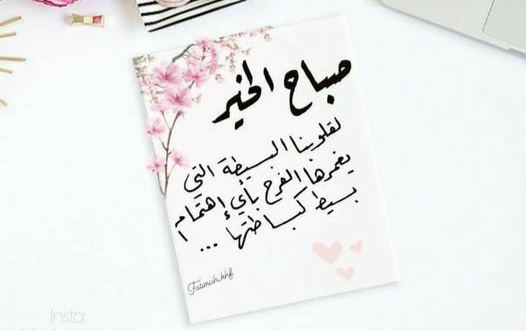 صباح الخير
لقلوبنا البسيطة التي
يغمرها الفرح بأي إهتمام
بسيط كبساطتها ...
Fatimah.khf
Insta: